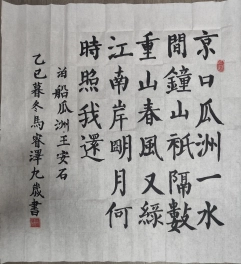 京口瓜洲一水
間鐘山衹隔數
重山春風又綠
江南岸明月何
時照我還
泊船瓜洲王安石
乙巳暮冬馬睿澤九歲書